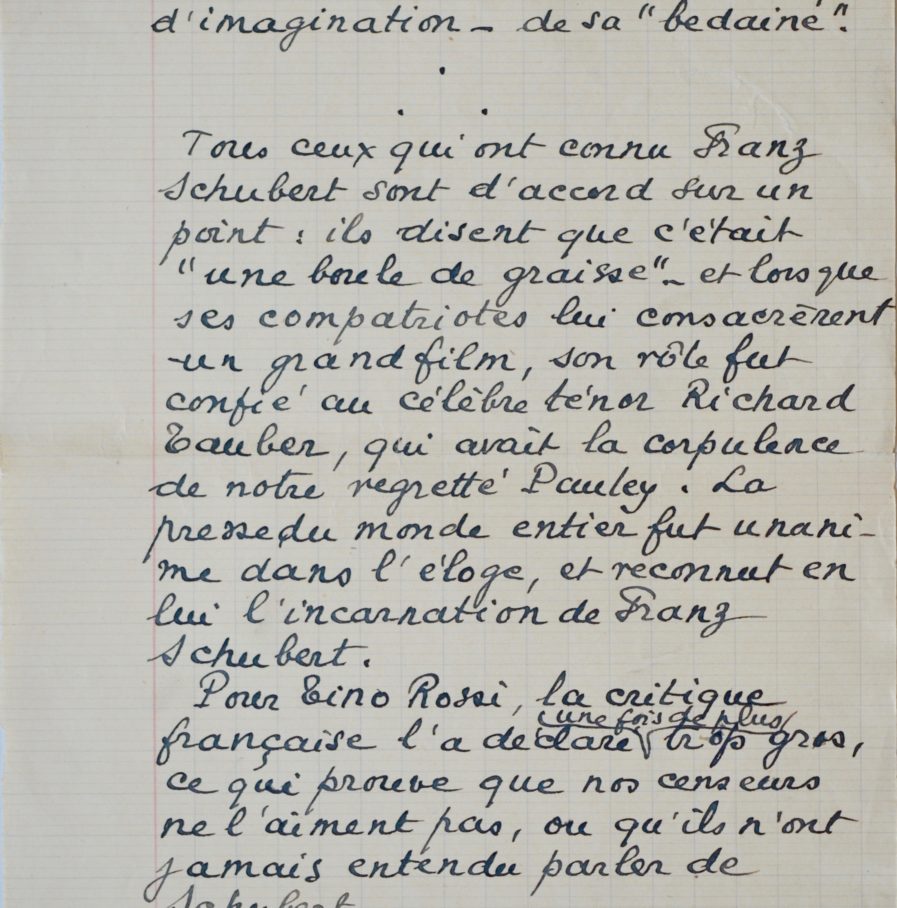 d'imagination – de sa "bedaine".
Tous ceux qui ont connu Franz
Schubert sont d'accord sur un
point : ils disent que c'était
"une boule de graisse" – et lorsque
ses compatriotes lui consacrèrent
un grand film, son rôle fut
confié au célèbre ténor Richard
Tauber, qui avait la corpulence
de notre regretté Pauley. La
presse du monde entier fut unani-
me dans l'éloge, et reconnut en
lui l'incarnation de Franz
Schubert.
Pour Tino Rossi, la critique
une fois de plus
française l'a déclaré trop gros,
ce qui prouve que nos censeurs
ne l'aiment pas, ou qu'ils n'ont
jamais entendu parler de
Schubert